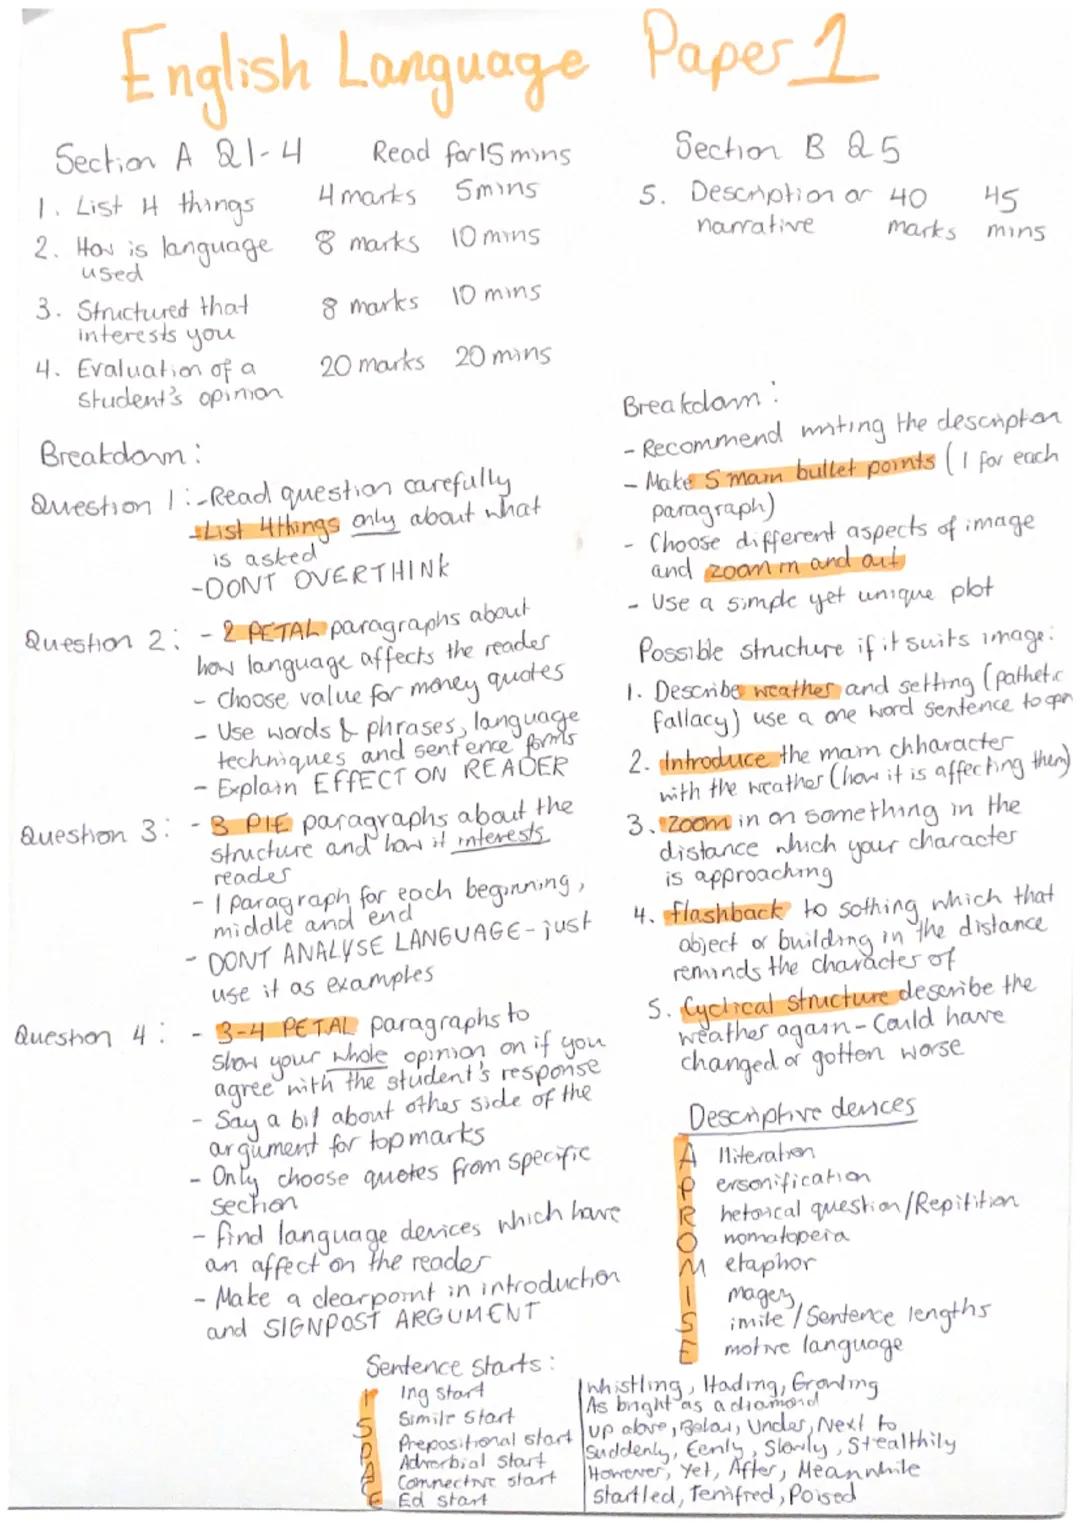 English Language Paper 1
Section A Q1-4 Read for 15 mins
1. List 4 things 4 marks 5 mins
2. How is language 8 marks 10 mins
used
3. Structured that 8 marks 10 mins
interests you
4. Evaluation of a 20 marks 20 mins
student's opinion
Section B Q5
5. Description or 40 45
narrative marks mins
Breakdown:
Question 1: -Read question carefully
-List 4 things only about what
is asked
-DONT OVERTHINK
Question 2: - 2 PETAL paragraphs about
how language affects the reader
- choose value for money quotes
- Use words & phrases, language
techniques and sentence forms
- Explain EFFECT ON READER
Question 3: - 3 PIE paragraphs about the
structure and how it interests
reader
- 1 paragraph for each beginning,
middle and end
- DONT ANALYSE LANGUAGE - just
use it as examples
Question 4: - 3-4 PETAL paragraphs to
show your whole opinion on if you
agree with the student's response
- Say a bit about other side of the
argument for top marks
- Only choose quotes from specific
section
- find language devices which have
an affect on the reader
- Make a clear point in introduction
and SIGNPOST ARGUMENT
Breakdown:
- Recommend writing the description
- Make 5 main bullet points (1 for each
paragraph)
- Choose different aspects of image
and zoom in and out
- Use a simple yet unique plot
Possible structure if it suits image:
1. Describe weather and setting (pathetic
fallacy) use a one word sentence to open
2. Introduce the main chharacter
with the weather (how it is affecting them)
3. Zoom in on something in the
distance which your character
is approaching
4. flashback to sothing which that
object or building in the distance
reminds the character of
5. Cyclical structure describe the
weather again - Could have
changed or gotten worse
Descriptive devices
A lliteration
P ersonification
R hetorical question/Repitition
O nomatopeia
M etaphor
I magery
S imile / Sentence lengths
E motive language
Sentence starts:
I Ing start Whistling, Hading, Growling
S Simile start As bright as a diamond
P Prepositional start Up above, Below, Under, Next to
A Adverbial start Suddenly, Eerily, Slowly, Stealthily
C Connective start However, Yet, After, Meanwhile
E Ed start Startled, Terrified, Poised